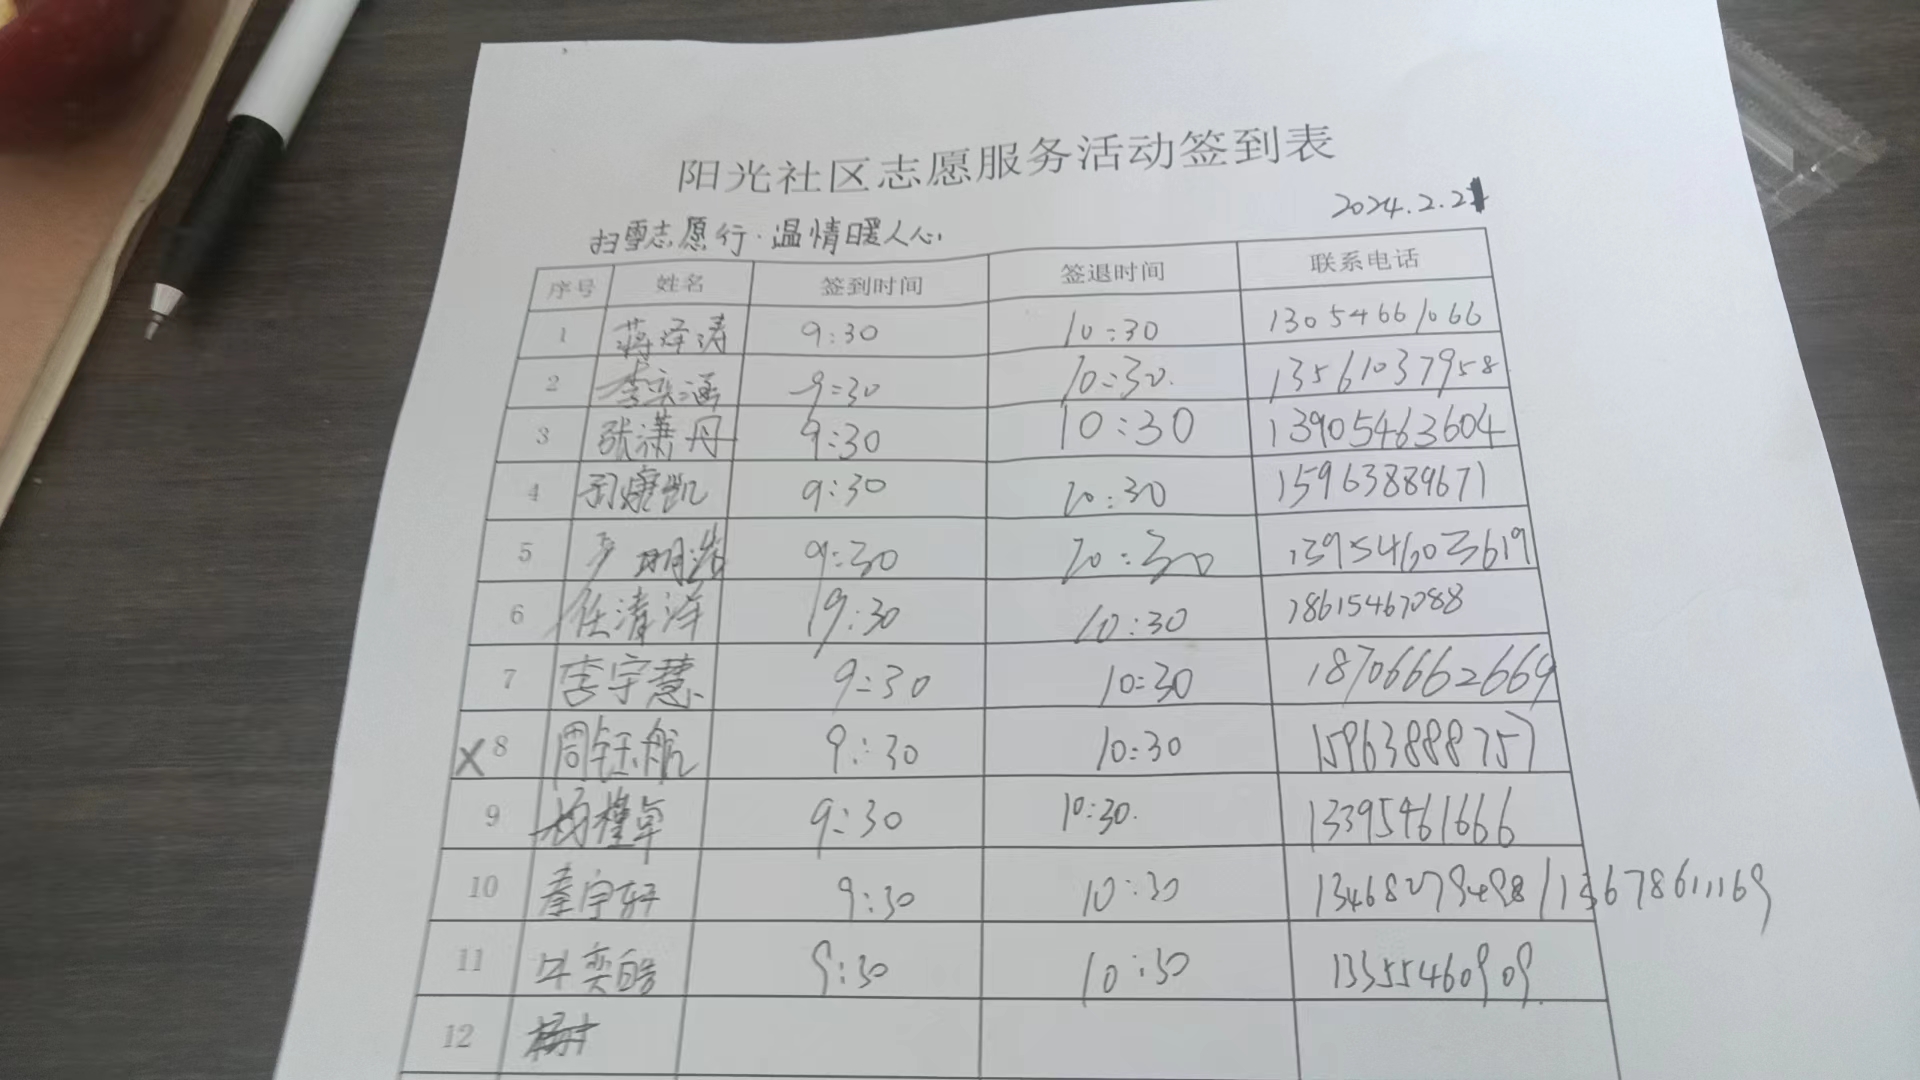 阳光社区志愿服务活动签到表
2024.2.21
扫雪志愿行·温情暖人心
序号 姓名 签到时间 签退时间 联系电话
1 蒋泽涛 9:30 10:30 13054661066
2 李奕涵 9:30 10:30. 13561037958
3 张潇丹 9:30 10:30 13905463604
4 康凯 9:30 10:30 15963889671
5 明浩 9:30 10:30 13954603619
6 任清泽 19:30 10:30 18615467088
7 李宇慧 9:30 10:30 18706662669
X 8 周钰航 9:30 10:30 15963888757
9 杨槿卓 9:30 10:30. 13395461666
10 秦宇轩 9:30 10:30 13468279498/13678611169
11 牛奕皓 9:30 10:30 13355460909
12